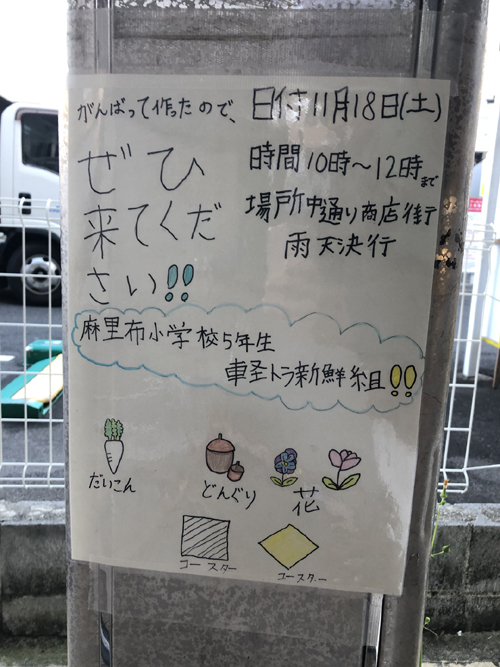 がんばって作ったので、
ぜひ
来てくだ
さい!!
日付11月18日(土)
時間10時~12時まで
場所中通り商店街
雨天決行
麻里布小学校5年生
車圣トラ新鮮組!!
だいこん
どんぐり
花
コースター
コースター